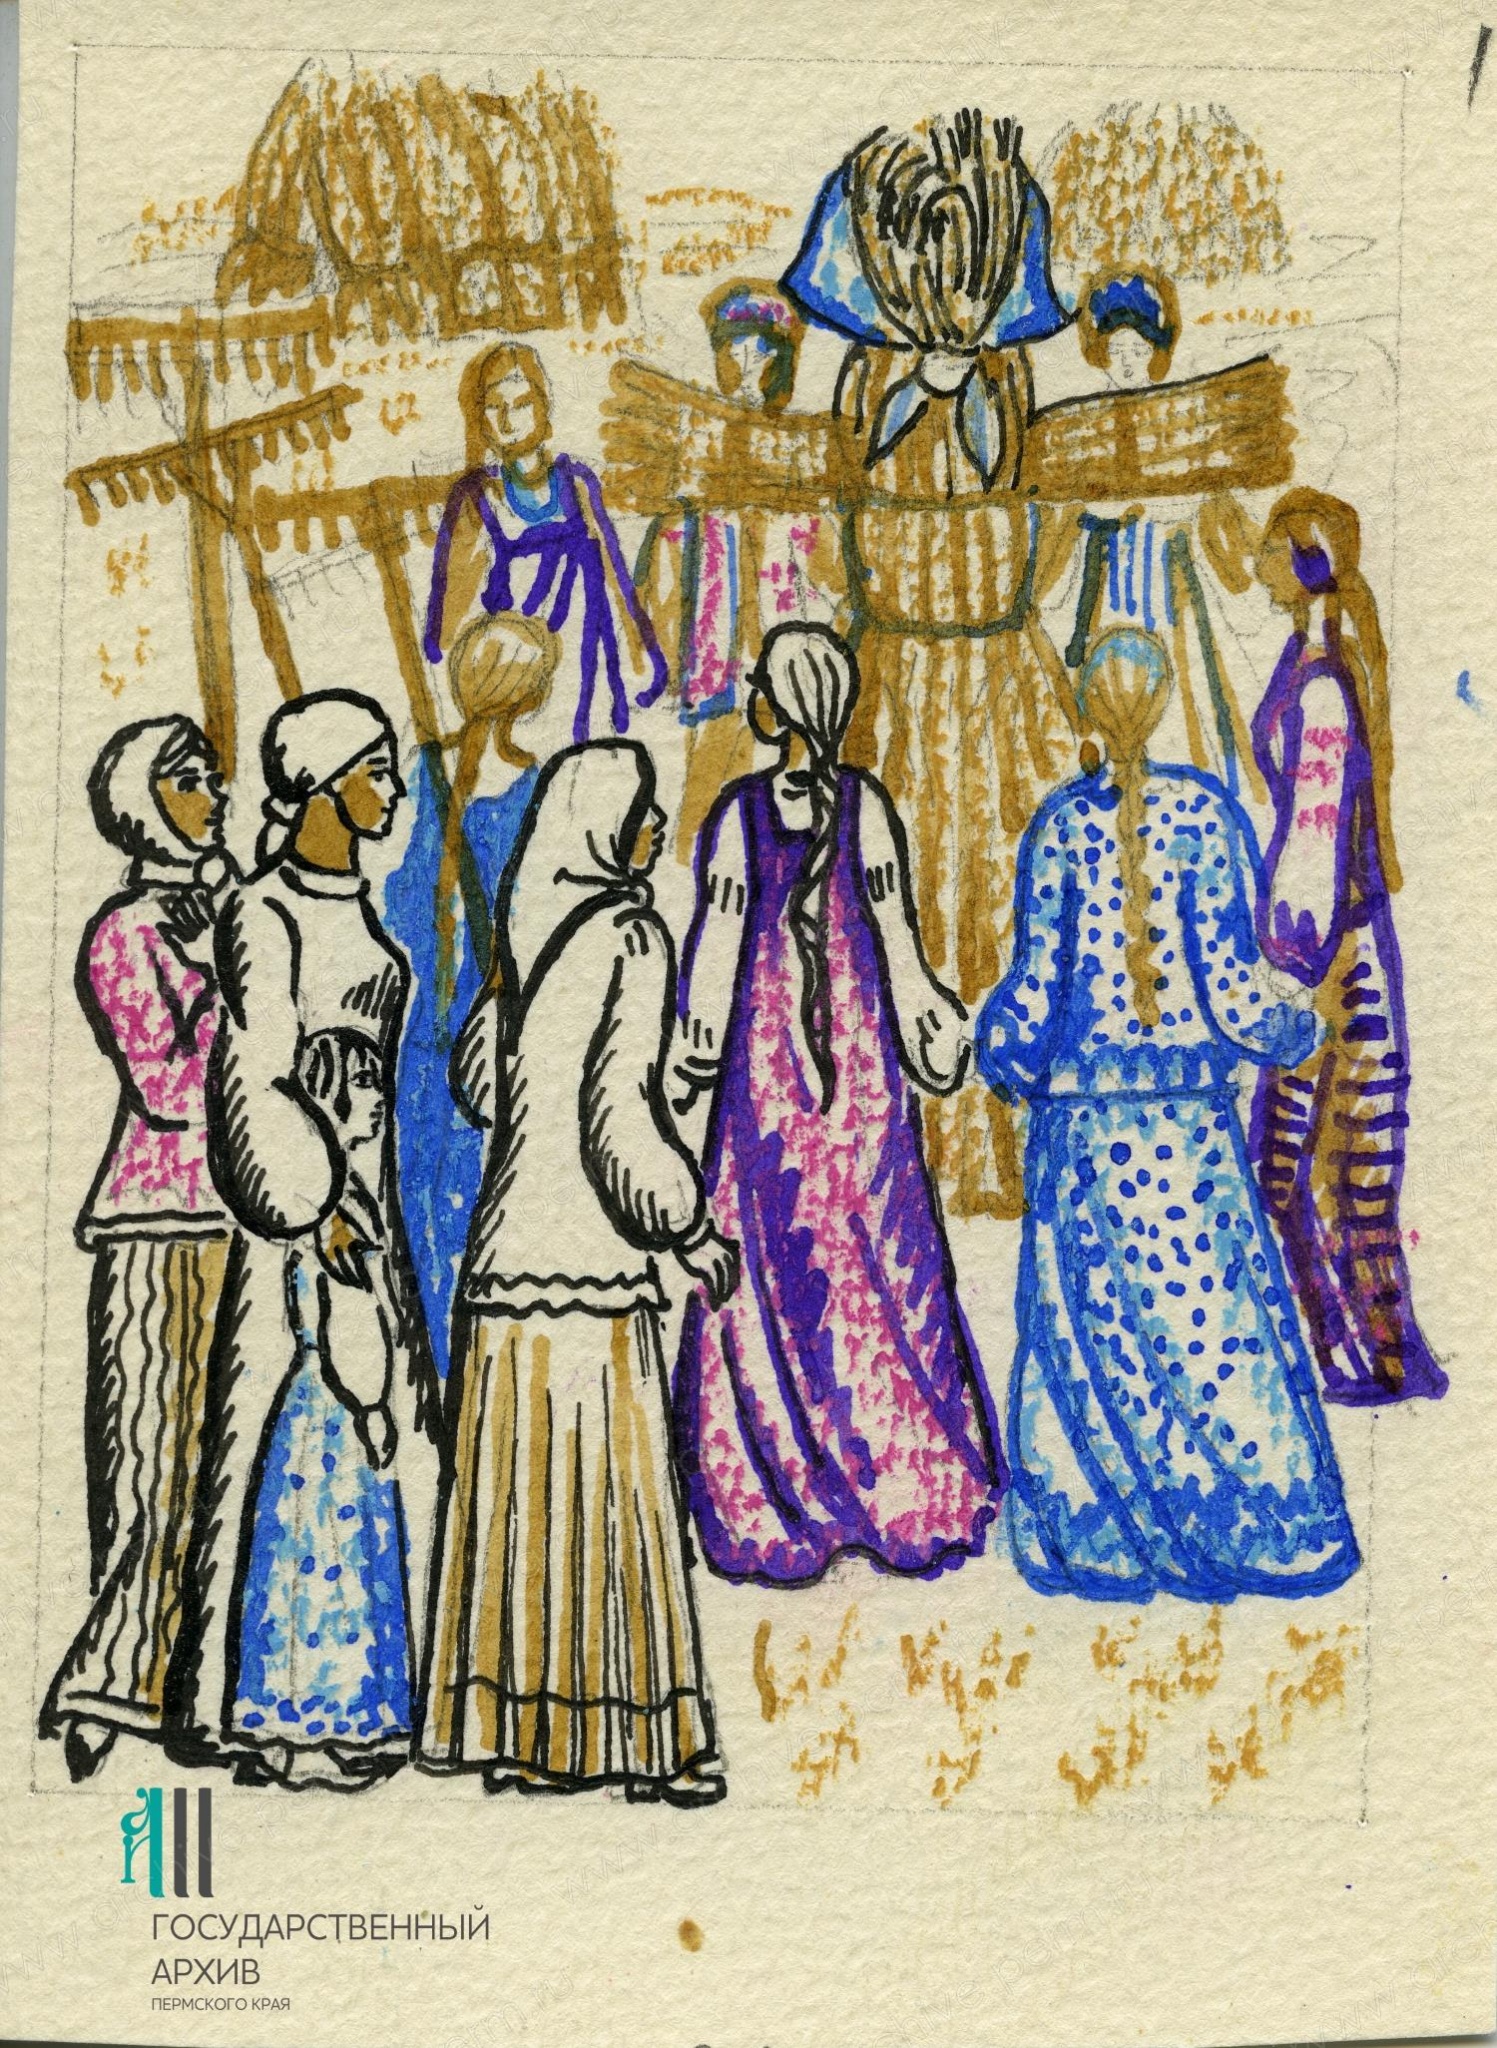 ГОСУДАРСТВЕННЫЙ
АРХИВ
ПЕРМСКОГО КРАЯ